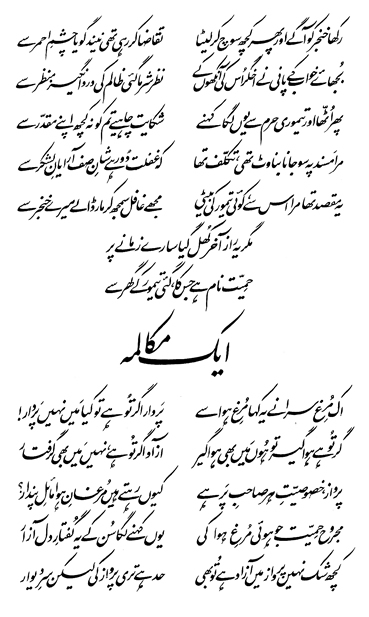 رکھا خنجر کو آگے اور پھر کچھ سوچ کر لیٹا تقاضا کر رہی تھی نیند گویا چشمِ احمر سے
بجھائے خواب کے پانی نے اخگر اس کی آنکھوں کے نظر شرما گئی ظالم کی درد انگیز منظر سے
پھر اٹھا اور تیموری حرم سے یوں لگا کہنے شکایت چاہیے تم کو نہ کچھ اپنے مقدر سے
مرا مسند پہ سو جانا بناوٹ تھی تکلف تھا کہ غفلت دور ہے شانِ صف آرایانِ لشکر سے
یہ مقصد تھا مرا اس سے کوئی تیمور کی بیٹی مجھے غافل سمجھ کر مار ڈالے میرے خنجر سے
مگر یہ راز آخر کھل گیا سارے زمانے پر
حمیّت نام ہے جس کا، گئی تیمور کے گھر سے
ایک مکالمہ
اک مرغِ سرا نے یہ کہا مرغِ ہوا سے پردار اگر تو ہے تو کیا میں نہیں پردار!
گر تو ہے ہوا گیر تو ہوں میں بھی ہوا گیر آزاد اگر تو ہے نہیں میں بھی گرفتار
پرواز خصوصیتِ ہر صاحبِ پر ہے کیوں رہتے ہیں مرغانِ ہوا مائلِ پندار؟
مجروح حمیّت جو ہوئی مرغِ ہوا کی یوں کہنے لگا سن کے یہ گفتارِ دل آزار
کچھ شک نہیں پرواز میں آزاد ہے تو بھی حد ہے تری پرواز کی لیکن سرِ دیوار